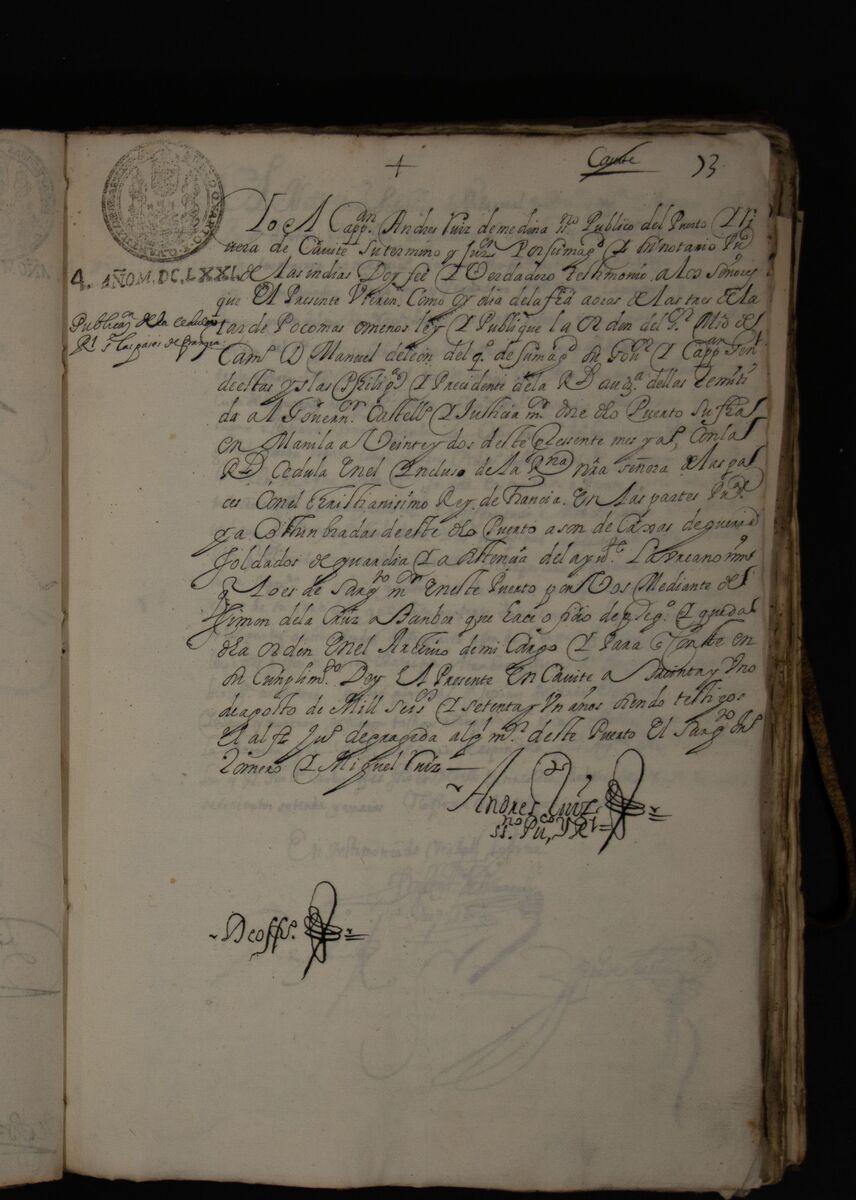 +
Cavite
13
Yo el Cappan. Andres Ruiz de medina ssno. Publico del Puerto y Ri
vera de Cavite su termino y Jurn. Por su magd. y su notario Puco
4. AÑO M. DC. LXXI.
de las indias Doy fee y Verdadero testimonio a los señores
que El Presente Vieren Como oy dia de la fha a oras de las tres de la
Publican. de la cedula
Rl. s. las paces de françia
tarde Poco mas o menos ley y Publique la orden del Sr. Mro de
Campo D Manuel de leon del Qo. de su magd. su Govor. y Cappan Genl
de estas yslas Philipas y Precidente de la Rl. audiª. dellas Remiti
da al Governor. Castellno. y Justicia mor. de este dho Puerto su fha
en Manila a Veinte y dos deste Pressente mes y aº, Con la
Rl Cedula En el Incluso de la Rna nra señora de las pa
ces Con el Christianisimo Rey de Francia. En las partes Pucas
y acostumbradas de este dho Puerto a son de Caxas de guerra
soldados de guardia y a asistencia del ayudte. Laureano
q lo es de Sargto mor En este Puerto y en Vos Mediante de
simon de la Cruz a Bambor que hace ofiçio de pregº. y queda
dha orden En el Archivo de mi Cargo y Para q Conste en
su Cunplimto. Doy El Presente En Cavite a treinta y Uno
de agosto de Mill seisos. y setenta y Un años siendo testigos
El alfz Juº de grageda algl mor. deste Puerto El Sargto
Romero y Miguel Ruiz
Andres Ruiz
ssno. Puco, Y Rl
De offo.